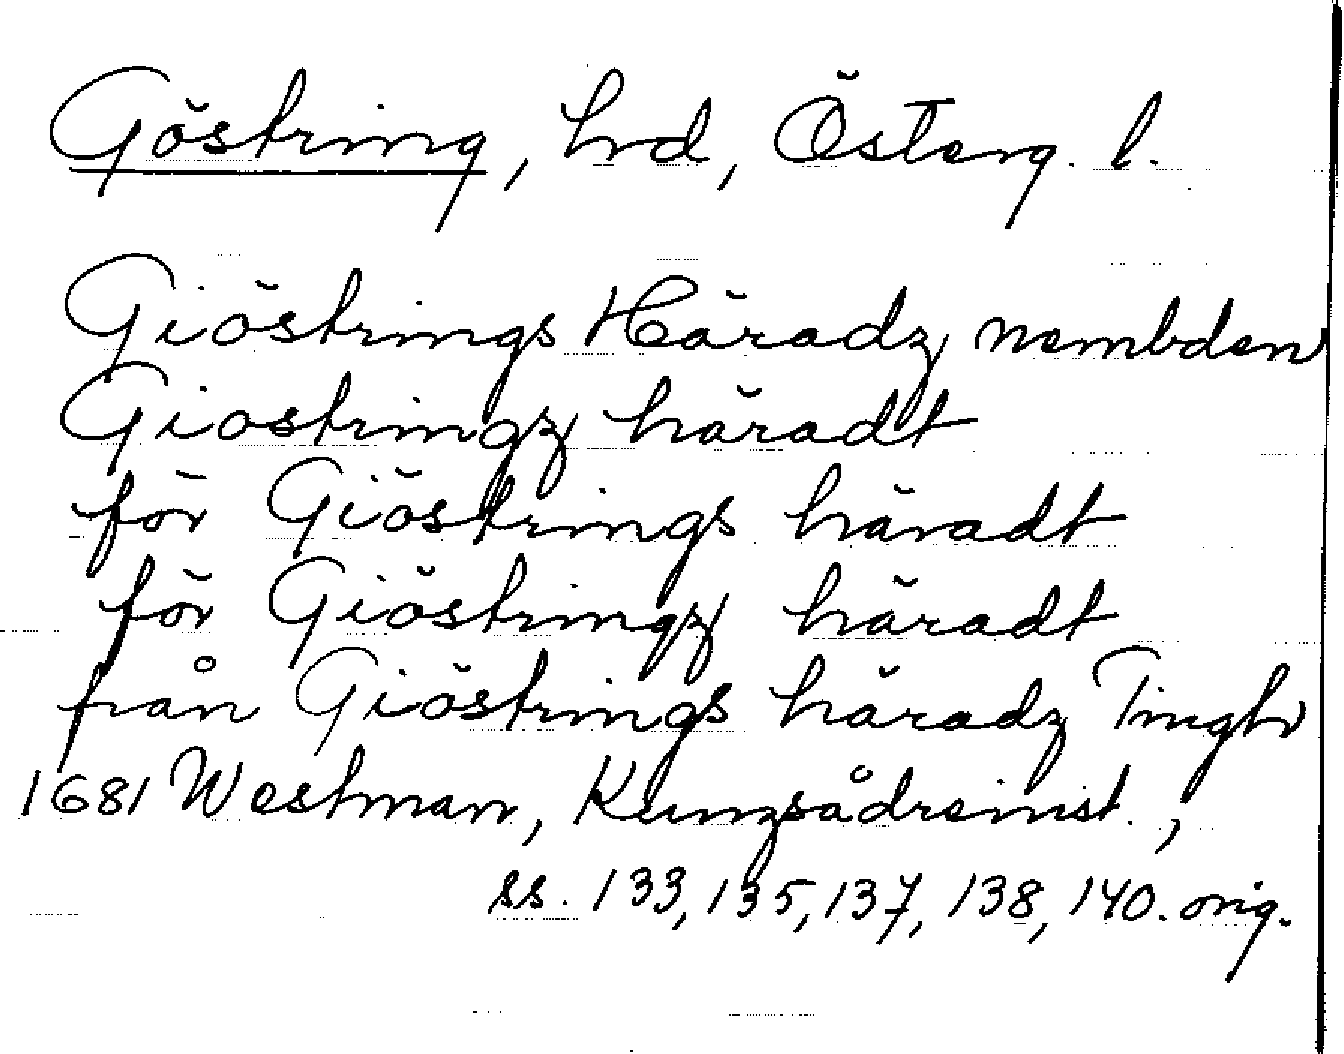 Göstring, hrd, Österg. l.
Giöstrings Häradz nembden
Giostringz häradt
för Giöstrings häradt
för Giöstringz häradt
från Giöstrings häradz Tingh
1681 Westman, Kunzsådreinist.,
ss. 133, 135, 137, 138, 140. orig.